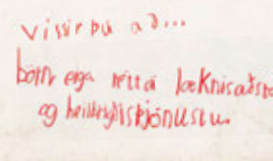 vissir þú að...
börn eiga rétt á læknisaðsto
og heilbrigðisþjónustu.